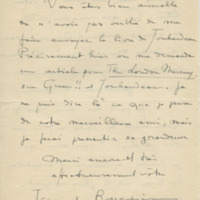 Vous êtes bien aimable
de n'avoir pas oublié de me
faire envoyer le livre de Jouhandeau
Précisément hier on me demande
un article pour The London Mercury
sur Green!! et Jouhandeau. Je
ne puis dire là ce que je pense
de notre merveilleux ami, mais
je ferai pressentir sa grandeur
Merci encore et très
affectueusement votre